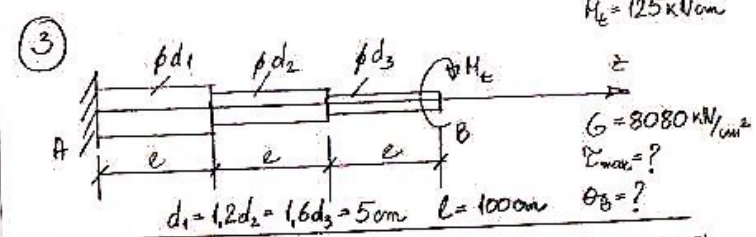 M_t = 125 kNcm
3
ϕd₁ ϕd₂ ϕd₃ M_t z
A B
ℓ ℓ ℓ
G = 8080 kN/cm²
τ_max = ?
θ_B = ?
d₁ = 1,2d₂ = 1,6d₃ = 5cm ℓ = 100cm